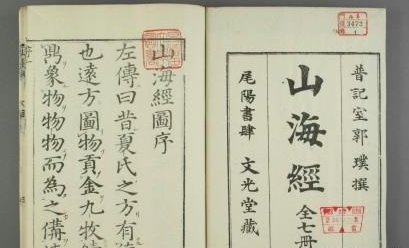 晉記室郭璞撰
山海經 全七冊
尾陽書肆 文光堂藏
3472
1
山海經圖序
左傳曰昔夏氏之方有
也遠方圖物貢金九牧
鼎象物物物而為之備